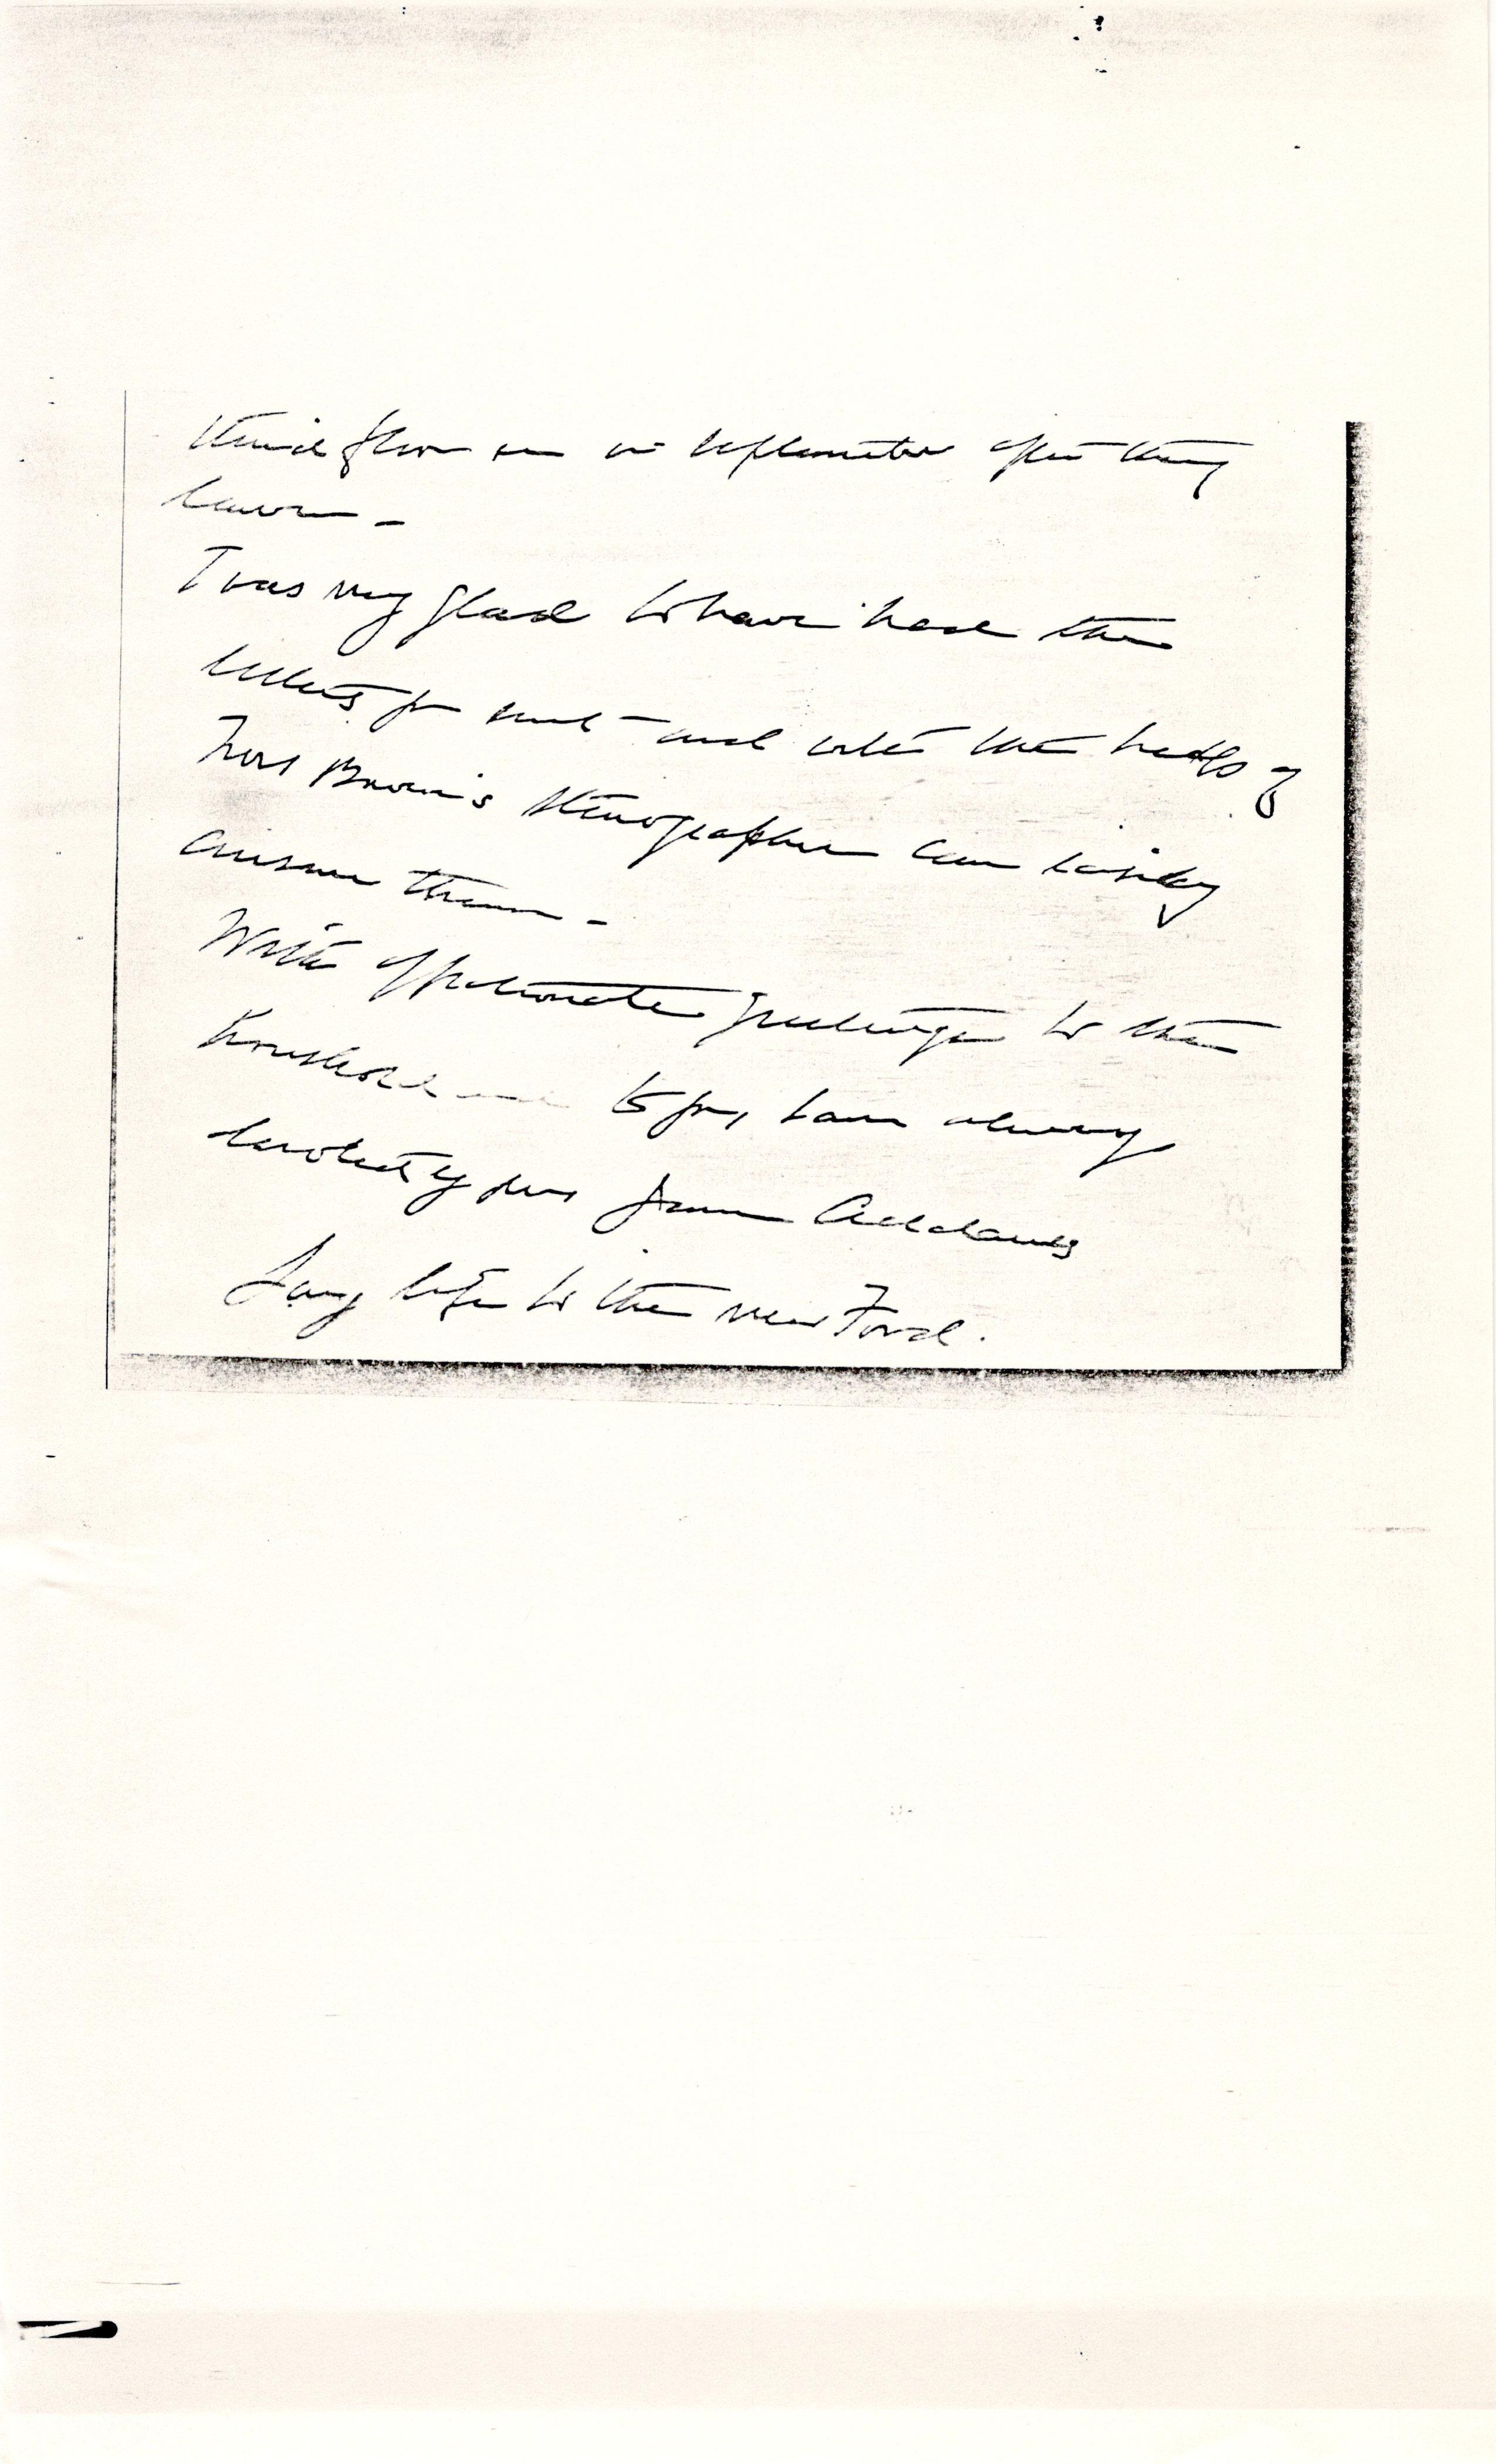 third floor room in September after they
leave –
I was very glad to have had the
letters you sent and with the help of
Miss Brown's stenographer can easily
answer them –
With affectionate greetings to the
household and to you, I am always
devotedly yours Jane Addams
Long life to the new Ford.